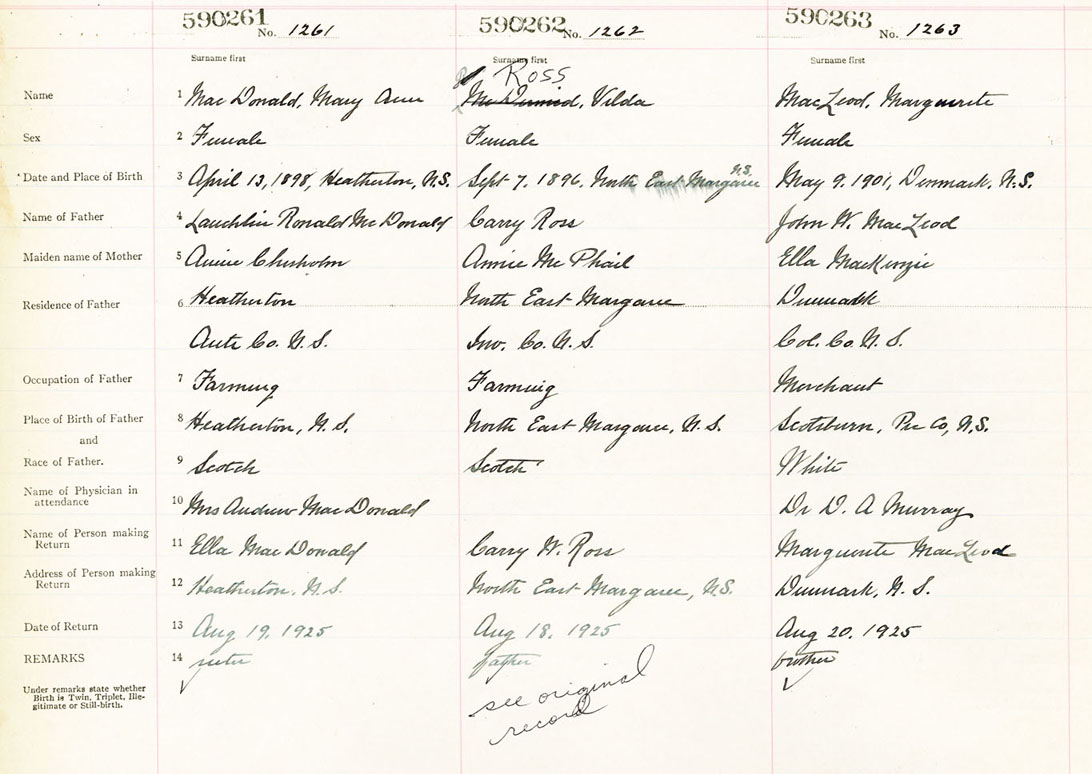 590261 No. 1261 590262 No. 1262 590263 No. 1263
Surname first Surname first Surname first
Ross
Name 1 Mac Donald, Mary Ann Vilda MacLeod, Marguerite
Sex 2 Female Female Female
Date and Place of Birth 3 April 13, 1898, Heatherton, N.S. Sept 7, 1896, North East Margaree N.S. May 9, 1901, Denmark, N.S.
Name of Father 4 Lauchlin Ronald McDonald Carry Ross John W. MacLeod
Maiden name of Mother 5 Annie Chisholm Annie McPhail Ella MacKenzie
Residence of Father 6 Heatherton North East Margaree Denmark
Ante Co. N.S. Inv. Co. N.S. Col. Co N.S.
Occupation of Father 7 Farming Farming Merchant
Place of Birth of Father 8 Heatherton, N.S. North East Margaree, N.S. Scotsburn, Pic Co, N.S.
and
Race of Father. 9 Scotch Scotch White
Name of Physician in attendance 10 Mrs Andrew MacDonald Dr D. A Murray
Name of Person making Return 11 Ella MacDonald Carry W. Ross Marguerite MacLeod
Address of Person making Return 12 Heatherton, N.S. North East Margaree, N.S. Denmark, N.S.
Date of Return 13 Aug 19, 1925 Aug 18, 1925 Aug 20, 1925
REMARKS 14 father
Under remarks state whether
Birth is Twin, Triplet, Ille-
gitimate or Still-birth.
see original
record